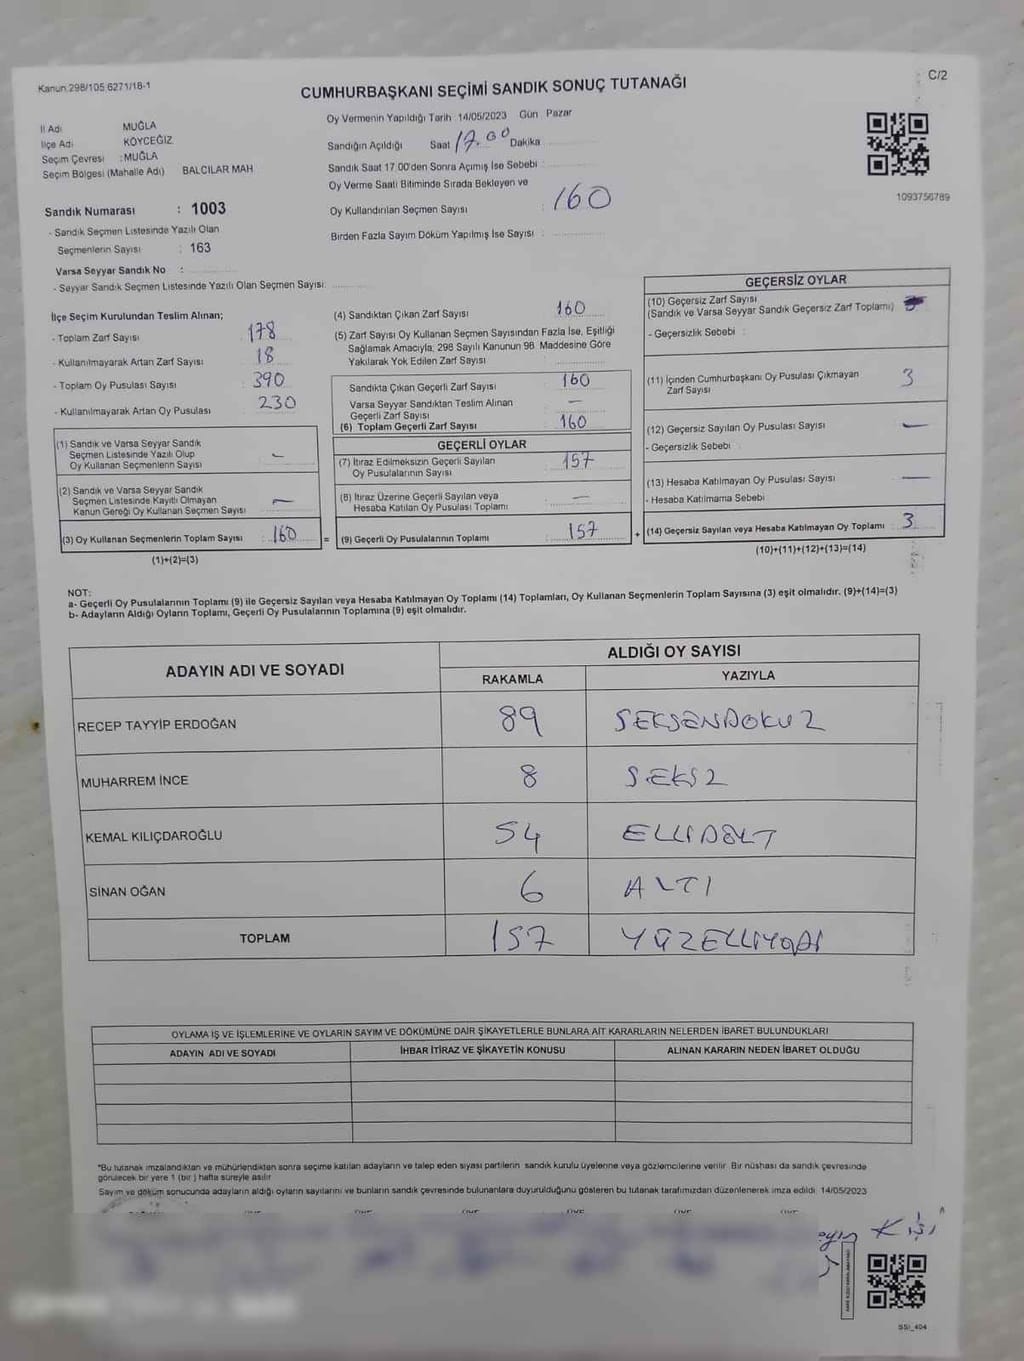 Kanun:298/105,6271/18-1
CUMHURBAŞKANI SEÇİMİ SANDIK SONUÇ TUTANAĞI
C/2
İl Adı MUĞLA
İlçe Adı KÖYCEĞİZ
Seçim Çevresi :MUĞLA
Seçim Bölgesi (Mahalle Adı) BALCILAR MAH
Oy Vermenin Yapıldığı Tarih :14/05/2023 Gün Pazar
Sandığın Açıldığı Saat 17.00 Dakika
Sandık Saat 17:00'den Sonra Açımış İse Sebebi :
Oy Verme Saati Bitiminde Sırada Bekleyen ve
Oy Kullandırılan Seçmen Sayısı : 160
Birden Fazla Sayım Döküm Yapılmış İse Sayısı :
1093756789
Sandık Numarası : 1003
- Sandık Seçmen Listesinde Yazılı Olan
Seçmenlerin Sayısı : 163
Varsa Seyyar Sandık No :
- Seyyar Sandık Seçmen Listesinde Yazılı Olan Seçmen Sayısı:
İlçe Seçim Kurulundan Teslim Alınan;
- Toplam Zarf Sayısı : 178
- Kullanılmayarak Artan Zarf Sayısı : 18
- Toplam Oy Pusulası Sayısı : 390
- Kullanılmayarak Artan Oy Pusulası : 230
(1) Sandık ve Varsa Seyyar Sandık
Seçmen Listesinde Yazılı Olup
Oy Kullanan Seçmenlerin Sayısı : –
(2) Sandık ve Varsa Seyyar Sandık
Seçmen Listesinde Kayıtlı Olmayan
Kanun Gereği Oy Kullanan Seçmen Sayısı : –
(3) Oy Kullanan Seçmenlerin Toplam Sayısı : 160 =
(1)+(2)=(3)
(4) Sandıktan Çıkan Zarf Sayısı : 160
(5) Zarf Sayısı Oy Kullanan Seçmen Sayısından Fazla İse, Eşitliği
Sağlamak Amacıyla, 298 Sayılı Kanunun 98. Maddesine Göre
Yakılarak Yok Edilen Zarf Sayısı :
Sandıkta Çıkan Geçerli Zarf Sayısı : 160
Varsa Seyyar Sandıktan Teslim Alınan
Geçerli Zarf Sayısı : –
(6) Toplam Geçerli Zarf Sayısı : 160
GEÇERLİ OYLAR
(7) İtiraz Edilmeksizin Geçerli Sayılan
Oy Pusulalarının Sayısı : 157
(8) İtiraz Üzerine Geçerli Sayılan veya
Hesaba Katılan Oy Pusulası Toplamı : –
(9) Geçerli Oy Pusulalarının Toplamı : 157 +
GEÇERSİZ OYLAR
(10) Geçersiz Zarf Sayısı
(Sandık ve Varsa Seyyar Sandık Geçersiz Zarf Toplamı) :
- Geçersizlik Sebebi :
(11) İçinden Cumhurbaşkanı Oy Pusulası Çıkmayan
Zarf Sayısı : 3
(12) Geçersiz Sayılan Oy Pusulası Sayısı : –
- Geçersizlik Sebebi :
(13) Hesaba Katılmayan Oy Pusulası Sayısı : –
- Hesaba Katılmama Sebebi :
(14) Geçersiz Sayılan veya Hesaba Katılmayan Oy Toplamı : 3
(10)+(11)+(12)+(13)=(14)
NOT:
a- Geçerli Oy Pusulalarının Toplamı (9) ile Geçersiz Sayılan veya Hesaba Katılmayan Oy Toplamı (14) Toplamları, Oy Kullanan Seçmenlerin Toplam Sayısına (3) eşit olmalıdır. (9)+(14)=(3)
b- Adayların Aldığı Oyların Toplamı, Geçerli Oy Pusulalarının Toplamına (9) eşit olmalıdır.
ADAYIN ADI VE SOYADI ALDIĞI OY SAYISI
RAKAMLA YAZIYLA
RECEP TAYYİP ERDOĞAN 89 SEKSENDOKUZ
MUHARREM İNCE 8 SEKSZ
KEMAL KILIÇDAROĞLU 54 ELLİDÖRT
SİNAN OĞAN 6 ALTI
TOPLAM 157 YÜZELLİYEDİ
OYLAMA İŞ VE İŞLEMLERİNE VE OYLARIN SAYIM VE DÖKÜMÜNE DAİR ŞİKAYETLERLE BUNLARA AİT KARARLARIN NELERDEN İBARET BULUNDUKLARI
ADAYIN ADI VE SOYADI İHBAR İTİRAZ VE ŞİKAYETİN KONUSU ALINAN KARARIN NEDEN İBARET OLDUĞU
*Bu tutanak imzalandıktan ve mühürlendikten sonra seçime katılan adayların ve talep eden siyasi partilerin sandık kurulu üyelerine veya gözlemcilerine verilir. Bir nüshası da sandık çevresinde
görülecek bir yere 1 (bir ) hafta süreyle asılır.
Sayım ve döküm sonucunda adayların aldığı oyların sayılarını ve bunların sandık çevresinde bulunanlara duyurulduğunu gösteren bu tutanak tarafımızdan düzenlenerek imza edildi. 14/05/2023
SSI_404